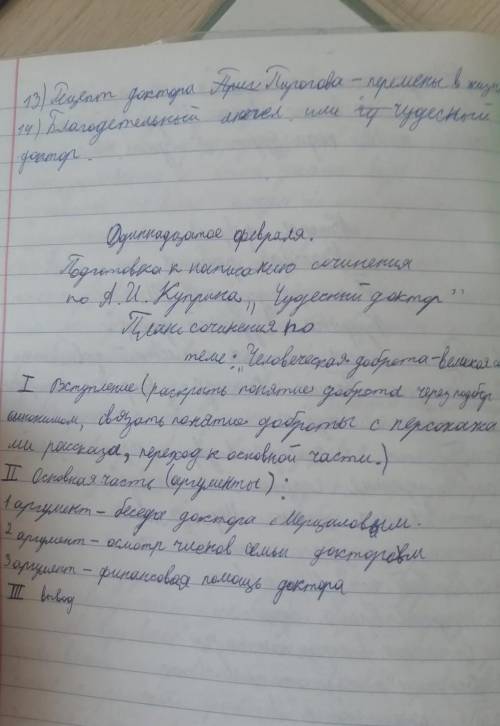 13) Рецепт доктора Пирогова - перемены в жизн
14) Благодетельный ангел или чудесный
доктор.
Одиннадцатое февраля.
Подготовка к написанию сочинения
по А.И. Куприна „Чудесный доктор"
План сочинения по
теме: „Человеческая доброта - великая
I Вступление (раскрыть понятие доброта через подбор
синонимом, связать понятие доброты с персонажа
ми рассказа, переход к основной части.)
II Основная часть (аргументы):
1 аргумент - беседа доктора с Мерцаловым.
2 аргумент - осмотр членов семьи доктором
3 аргумент - финансовая помощь доктора
III вывод